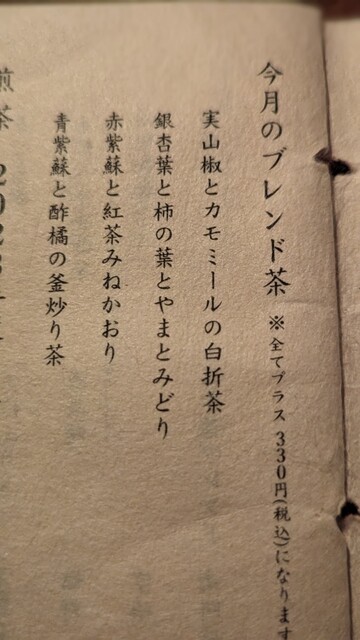 今月のブレンド茶 ※全てプラス330円(税込)になります
実山椒とカモミールの白折茶
銀杏葉と柿の葉とやまとみどり
赤紫蘇と紅茶みねかおり
青紫蘇と酢橘の釜炒り茶
煎茶 2023